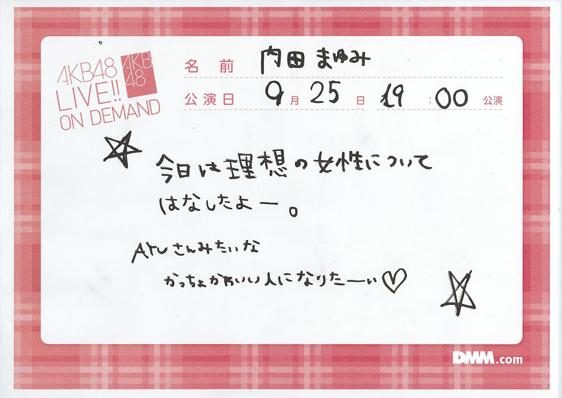 AKB48
LIVE!!
ON DEMAND
AKB
48
名前 内田まゆみ
公演日 9月25日 19:00公演
今日は理想の女性について
はなしたよー。
みたいな
かっちょかわいい人になりたーい♡
DMM.com